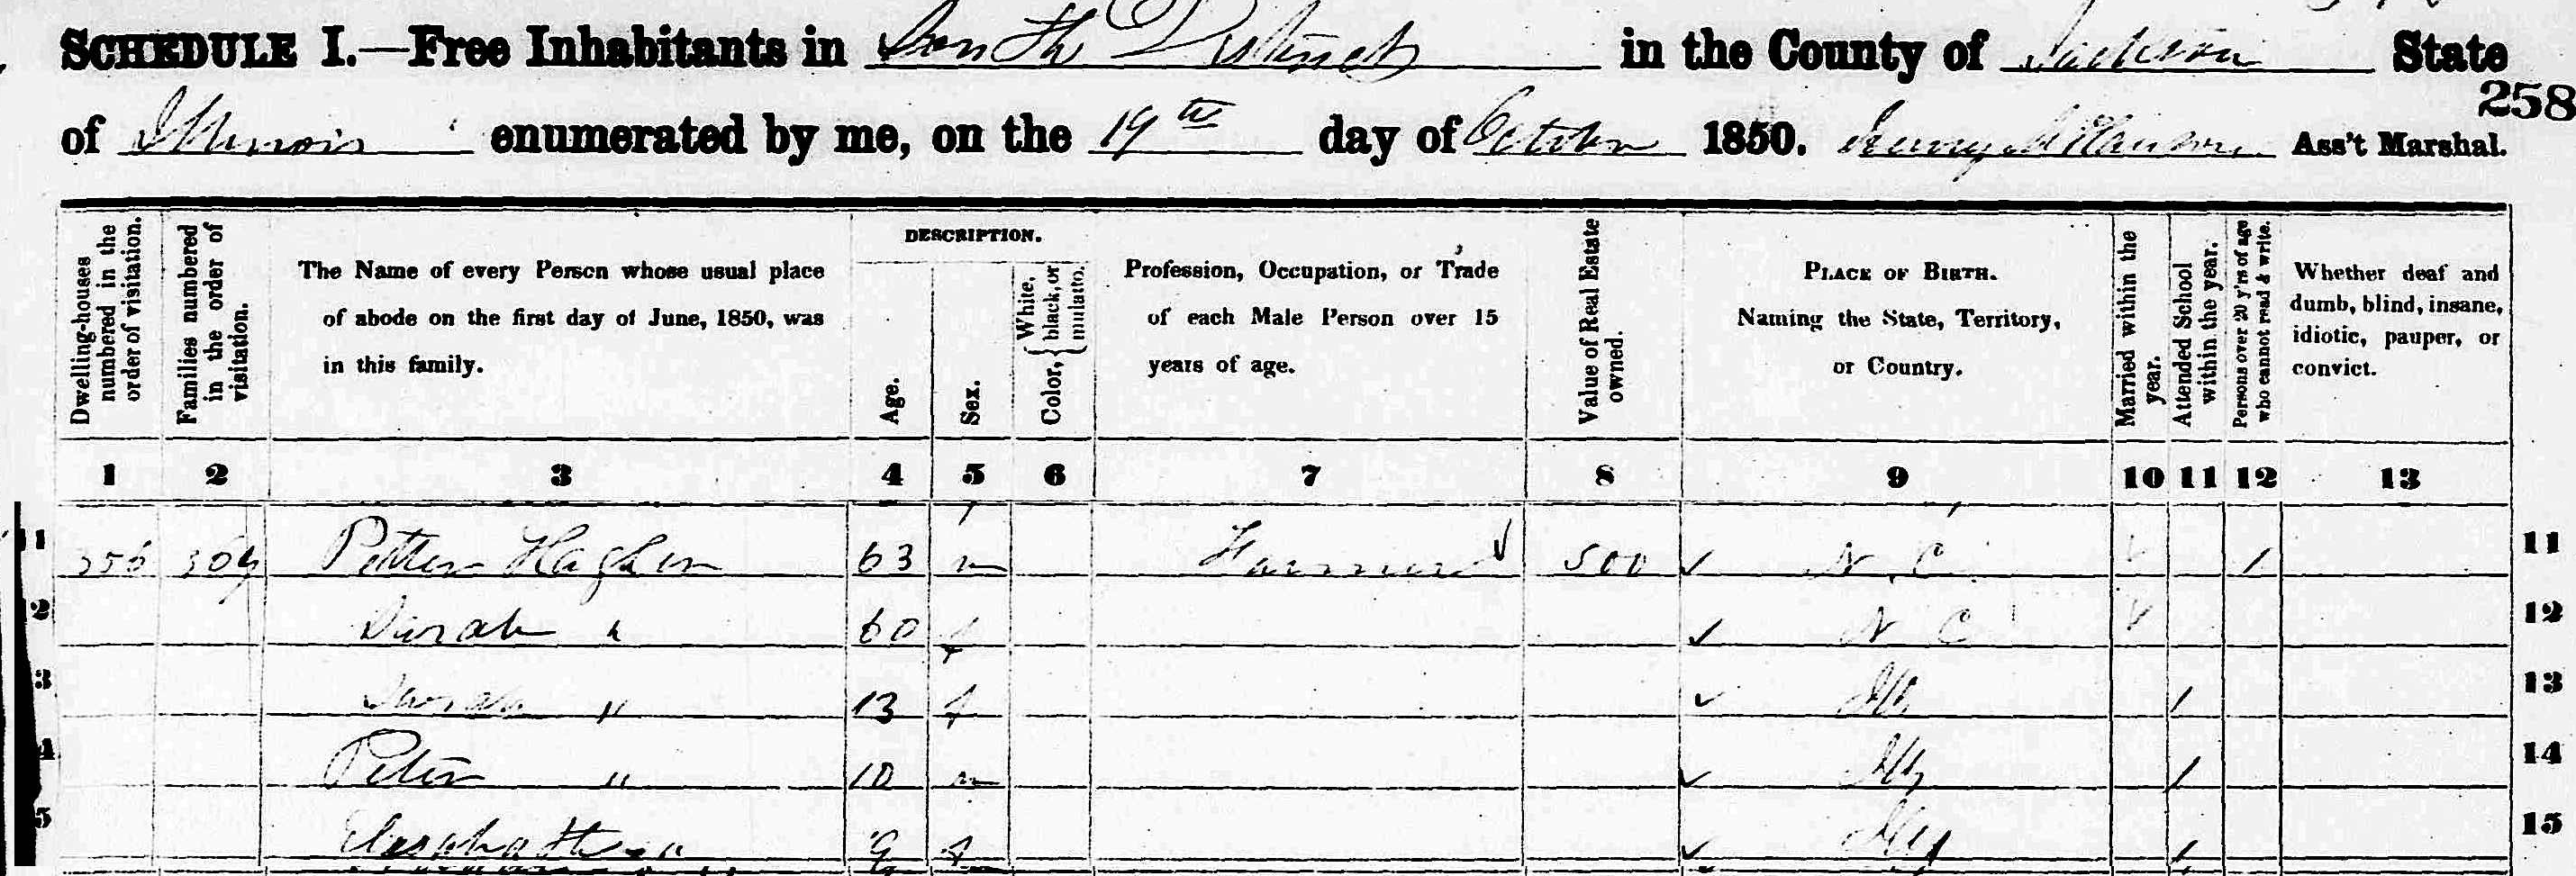 SCHEDULE I.—Free Inhabitants in South District in the County of Jackson State
258
of Illinois enumerated by me, on the 19th day of October 1850. Ass't Marshal.
Dwelling-houses numbered in the order of visitation.
Families numbered in the order of visitation.
The Name of every Person whose usual place
of abode on the first day of June, 1850, was
in this family.
DESCRIPTION.
Age.
Sex.
Color, { White, black, or mulatto.
Profession, Occupation, or Trade
of each Male Person over 15
years of age.
Value of Real Estate owned.
PLACE OF BIRTH.
Naming the State, Territory,
or Country.
Married within the year.
Attended School within the year.
Persons over 20 y'rs of age who cannot read & write.
Whether deaf and
dumb, blind, insane,
idiotic, pauper, or
convict.
1 2 3 4 5 6 7 8 9 10 11 12 13
11 356 364 63 m Farmer 500 N. C. 1 11
2 Sarah " 60 f N C 12
3 Sarah " 13 f Ill 1 13
4 Peter " 10 m Ill 1 14
5 " 9 f Ill 1 15